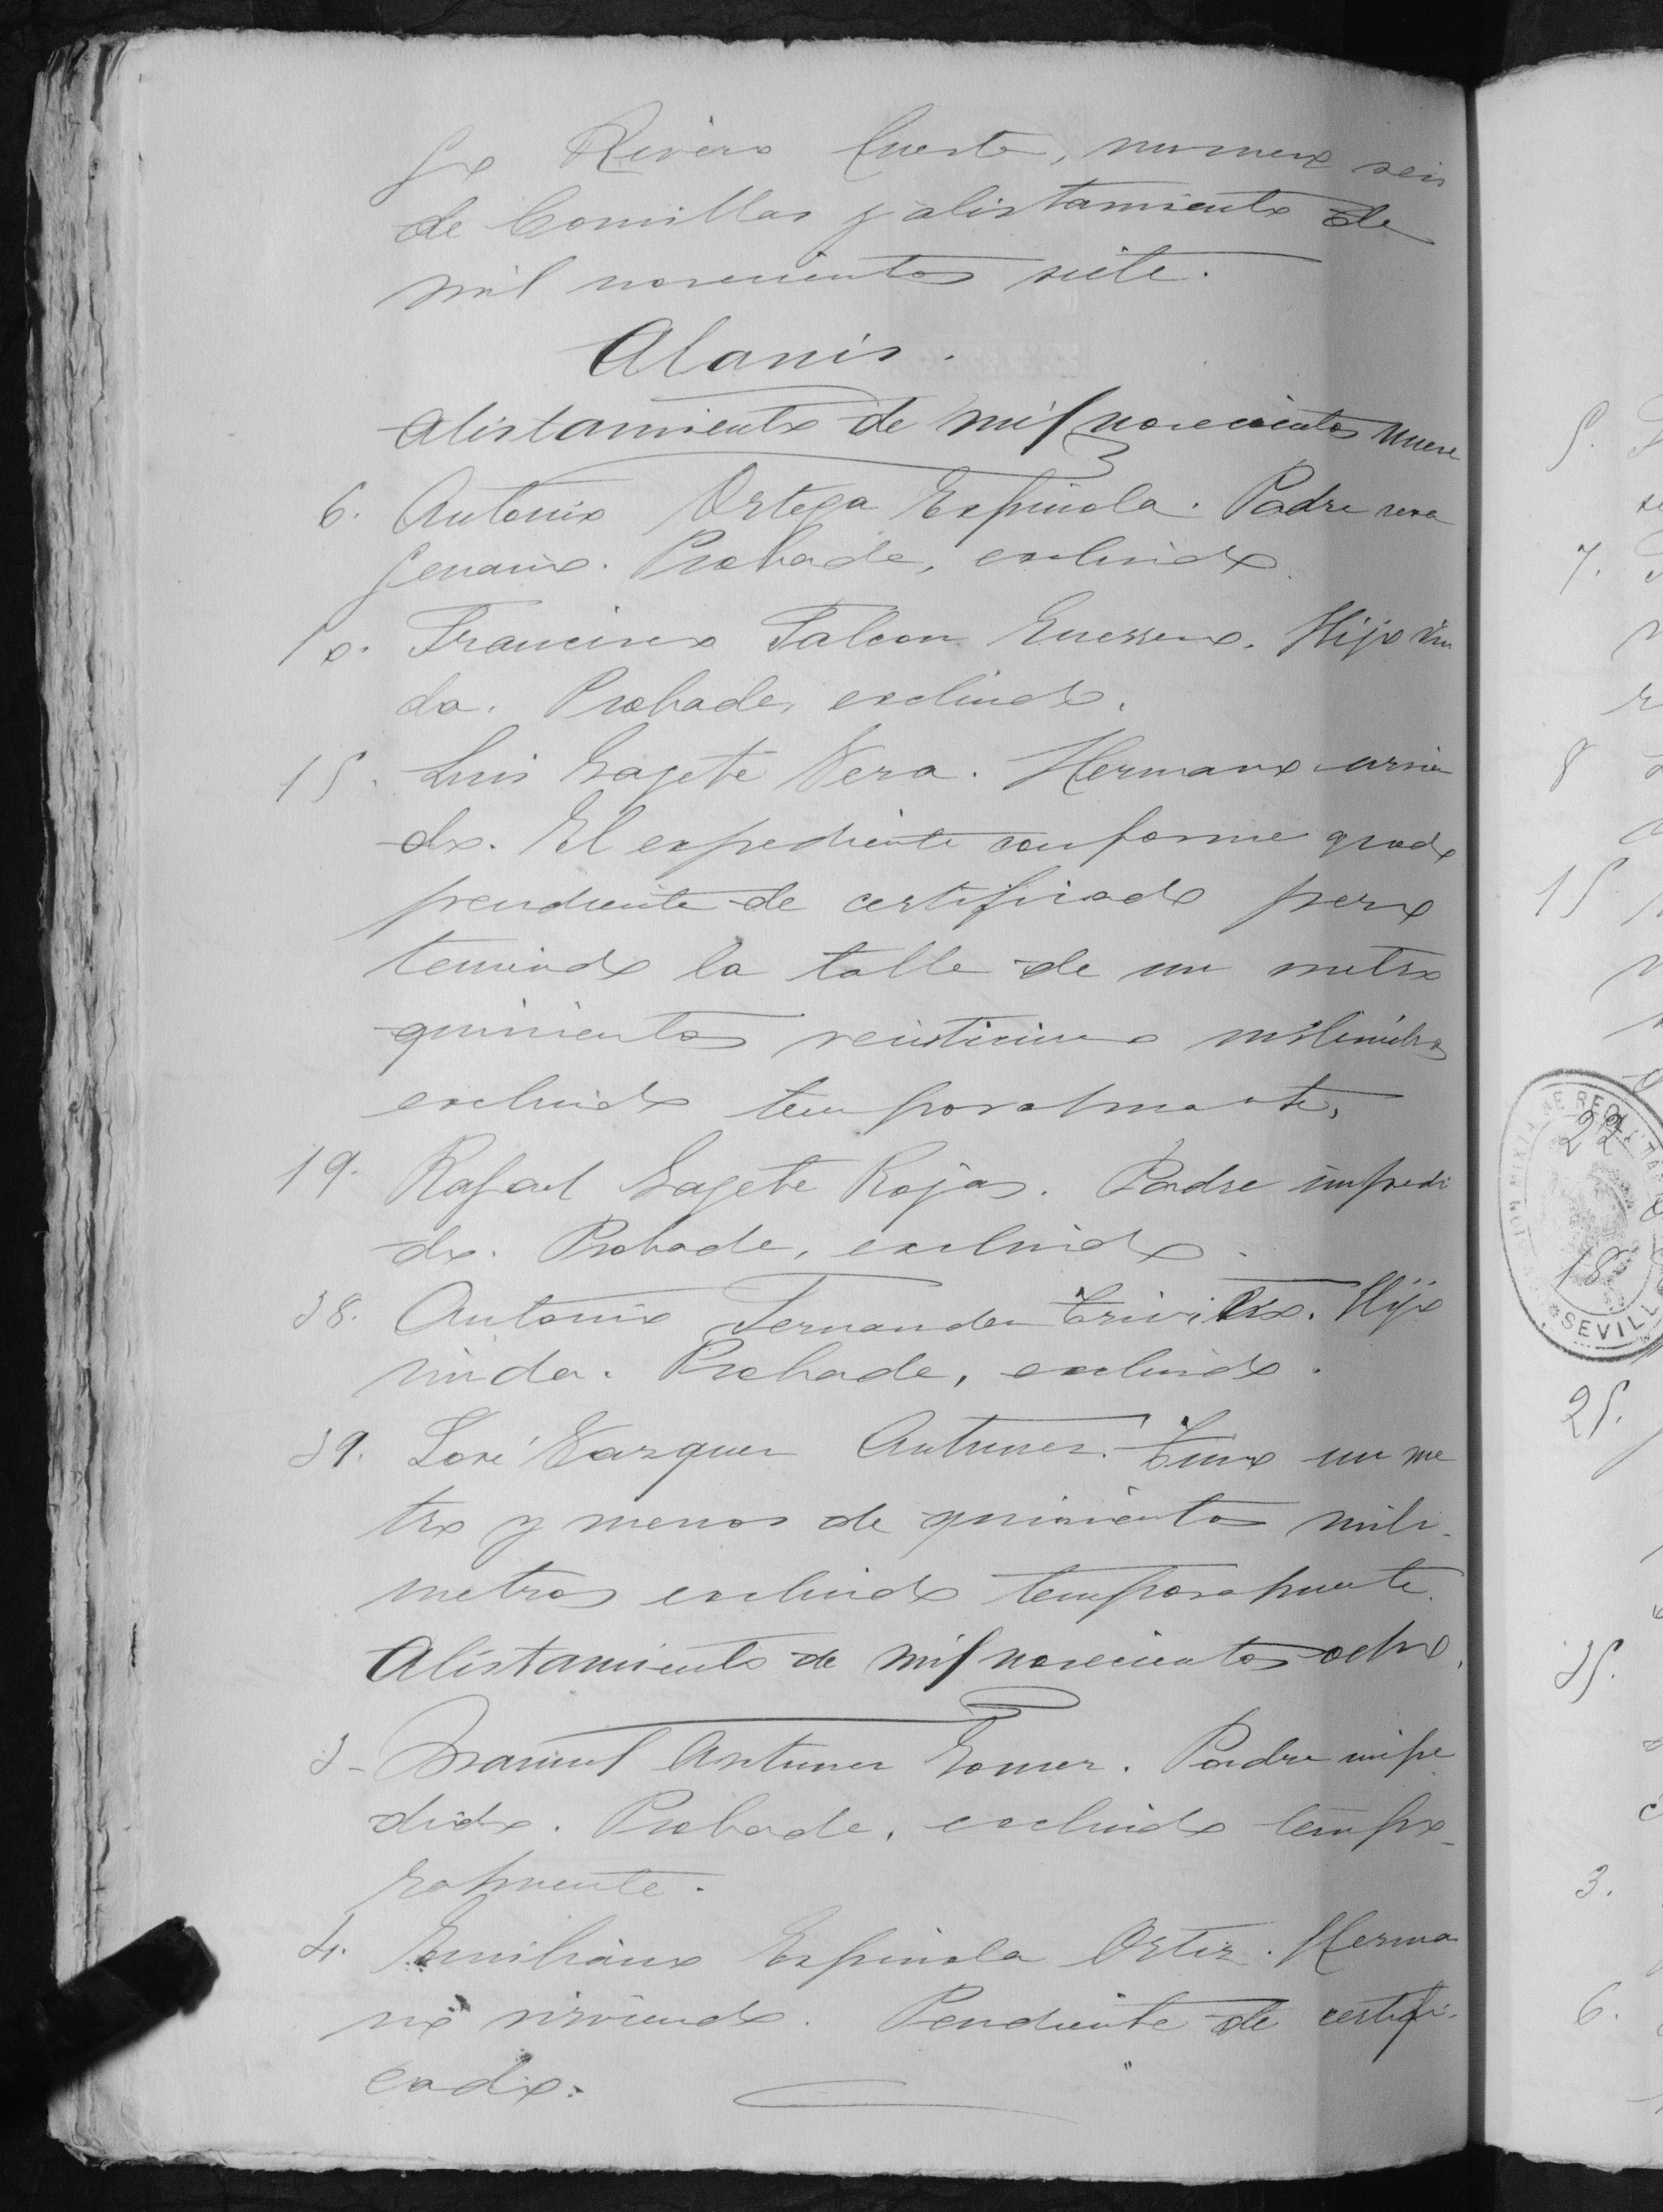 go Rivero Cuesta, numero seis
de Comillas y alistamiento de
mil novecientos siete.
Alanis.
Alistamiento de mil novecientos nueve
6. Antonio Ortega Espinola. Padre sexa
genario. Probada, excluido.
10. Francisco Falcon Guerrero. Hijo viu
da. Probada, excluido.
15. Luis Gagete Vera. Hermano sirvien
do. El expediente conforme queda
pendiente de certificado pero
teniendo la talla de un metro
quinientos veinticinco milimetros
excluido temporalmente.
19. Rafael Gagete Rojas. Padre impedi
do. Probada, excluido.
38. Antonio Fernandez Triviño. Hijo
viuda. Probada, excluido.
39. José Vazquez Antunez. Tuvo un me
tro y menos de quinientos mili-
metros excluido temporalmente.
Alistamiento de mil novecientos ocho.
3- Manuel Antunez Gomez. Padre impe
dido. Probada, excluido tempo-
ralmente.
4. Emiliano Espinola Ortiz. Herma
no sirviendo. Pendiente de certifi-
cado.
5.
7.
8
15
22
18
SEVILL
25.
35.
3.
6.